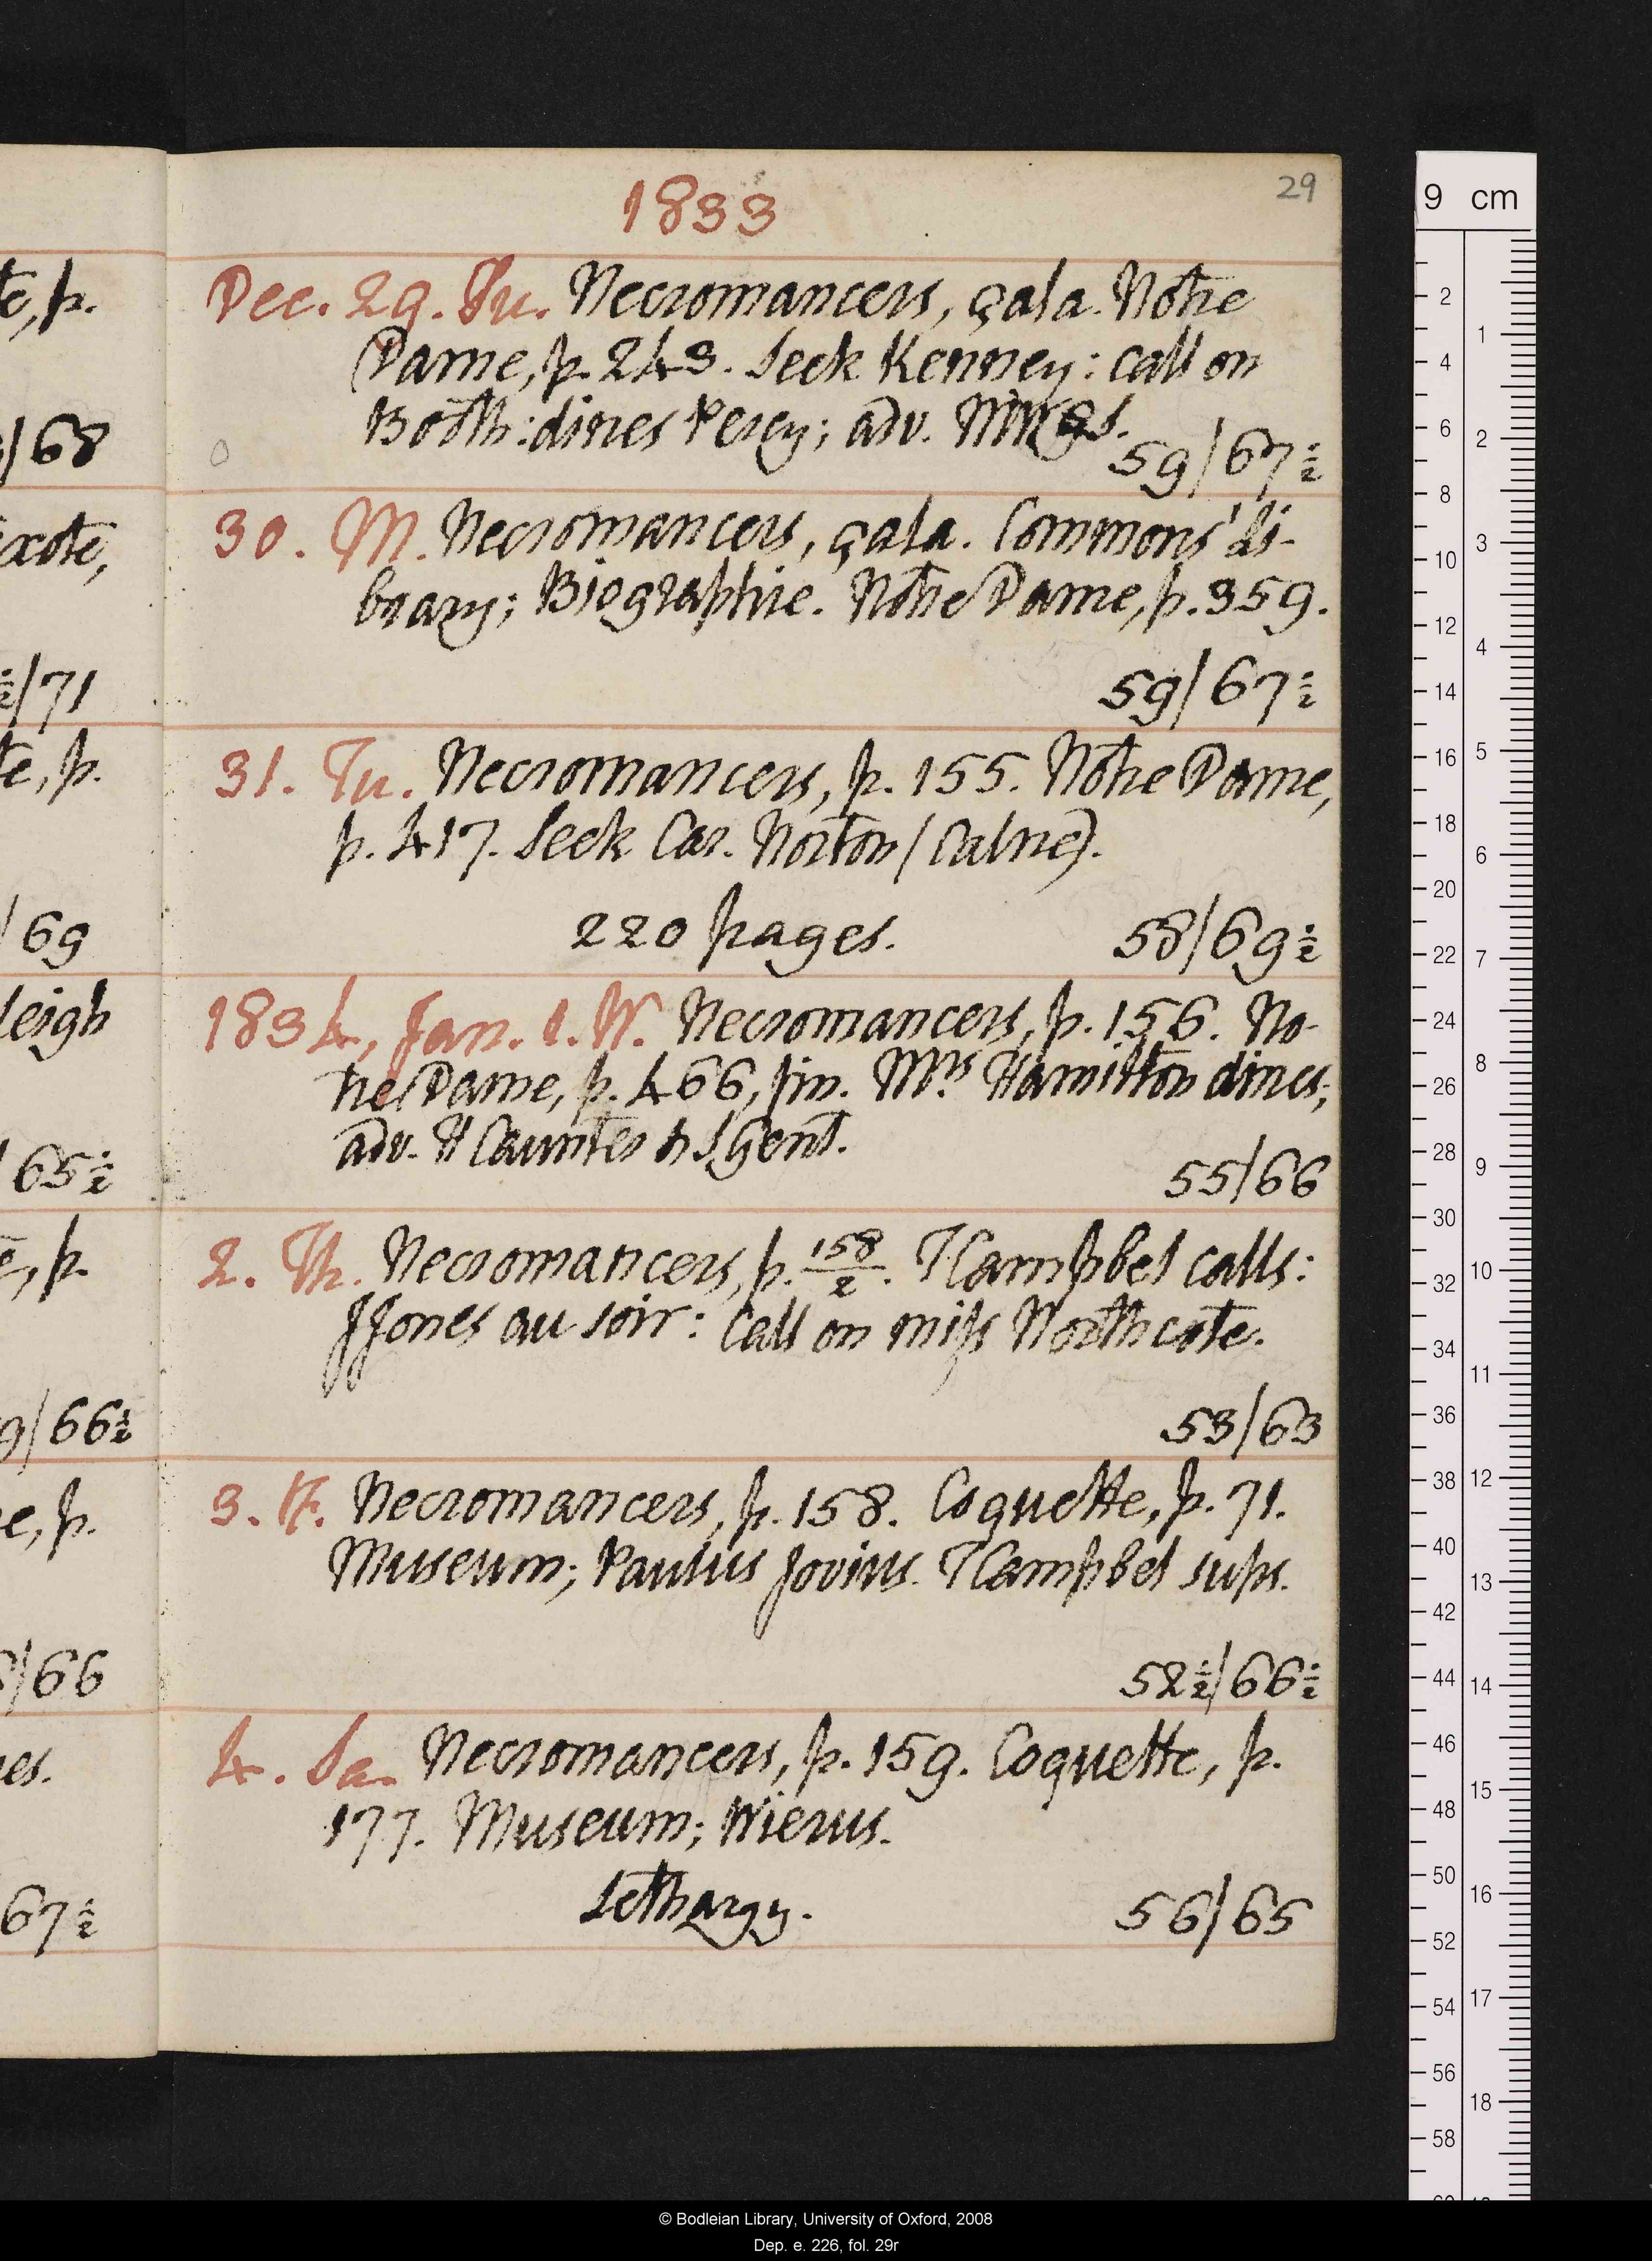 29
1833
Dec. 29. Su. Necromancers, çala. Notre
Dame, p. 243. Seek Kenney: call on
Booth: dines Percy; adv.
59/67½
30. M. Necromancers, çala. Commons' Li-
brary; Biographie. Notre Dame, p. 359.
59/67½
31. Tu. Necromancers, p. 155. Notre Dame,
p. 417. Seek Car. Norton (Calne).
220 pages. 58/69½
1834, Jan. 1. W. Necromancers, p. 156. No-
tre Dame, p. 466, fin. Mrs Hamilton dines;
adv. H Caunter & Sgent.
55/66
2. Th. Necromancers, p. 158/2. TCampbel calls:
JJones au soir: call on miss Northcote.
53/63
3. F. Necromancers, p. 158. Coquette, p. 71.
Museum; Paulus Jovius. TCampbel sups.
52½/66½
4. Sa. Necromancers, p. 159. Coquette, p.
177. Museum; Wierus.
Lethargy. 56/65
te, p.
/68
ixote,
½/71
te, p.
/69
leigh
65½
e, p.
9/66½
e, p.
/66
es.
67½
9 cm
2
4
6
8
10
12
14
16
18
20
22
24
26
28
30
32
34
36
38
40
42
44
46
48
50
52
54
56
58
1
2
3
4
5
6
7
8
9
10
11
12
13
14
15
16
17
18
© Bodleian Library, University of Oxford, 2008
Dep. e. 226, fol. 29r